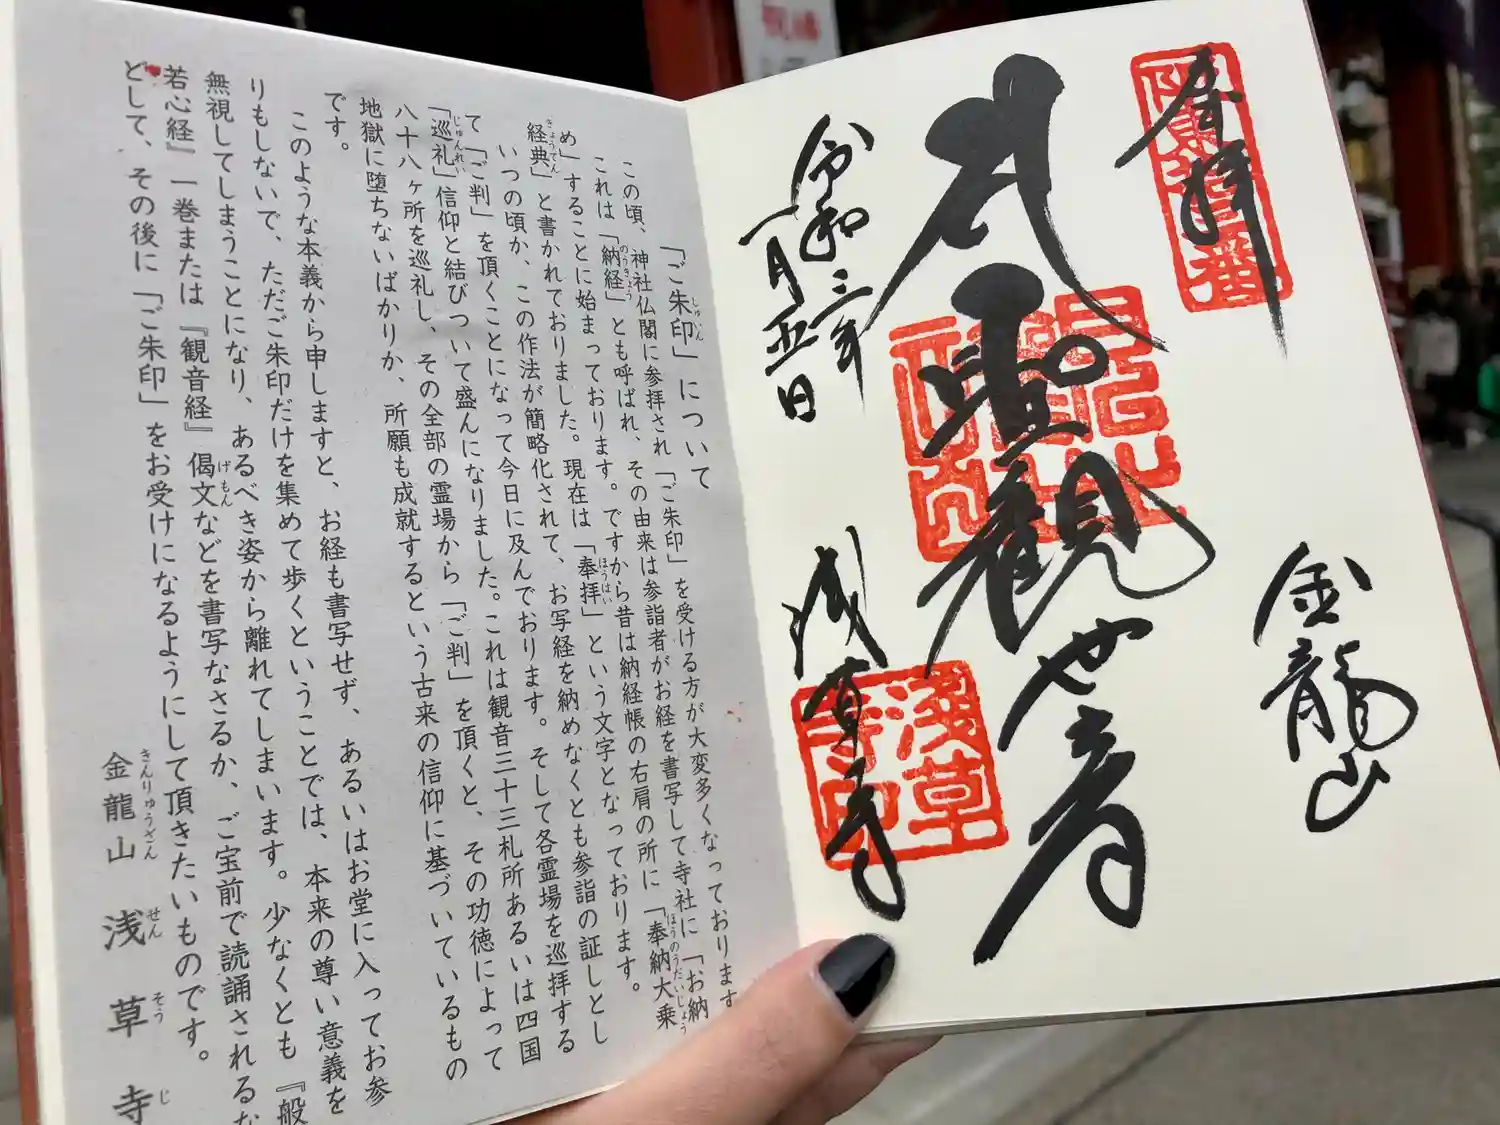 奉拝
坂東拾三番
金龍山
聖観世音
令和三年
一月五日
浅草寺
浅草寺印
「ご朱印」について
この頃、神社仏閣に参拝され「ご朱印」を受ける方が大変多くなっております
これは「納経」とも呼ばれ、その由来は参詣者がお経を書写して寺社に「お納
め」することに始まっております。ですから昔は納経帳の右肩の所に「奉納大乗
経典」と書かれておりました。現在は「奉拝」という文字となっております。
いつの頃か、この作法が簡略化されて、お写経を納めなくとも参詣の証しとし
て「ご判」を頂くことになって今日に及んでおります。そして各霊場を巡拝する
「巡礼」信仰と結びついて盛んになりました。これは観音三十三札所あるいは四国
八十八ヶ所を巡礼し、その全部の霊場から「ご判」を頂くと、その功徳によって
地獄に堕ちないばかりか、所願も成就するという古来の信仰に基づいているもの
です。
このような本義から申しますと、お経も書写せず、あるいはお堂に入ってお参
りもしないで、ただご朱印だけを集めて歩くということでは、本来の尊い意義を
無視してしまうことになり、あるべき姿から離れてしまいます。少なくとも『般
若心経』一巻または『観音経』偈文などを書写なさるか、ご宝前で読誦されるな
どして、その後に「ご朱印」をお受けになるようにして頂きたいものです。
金龍山 浅草寺